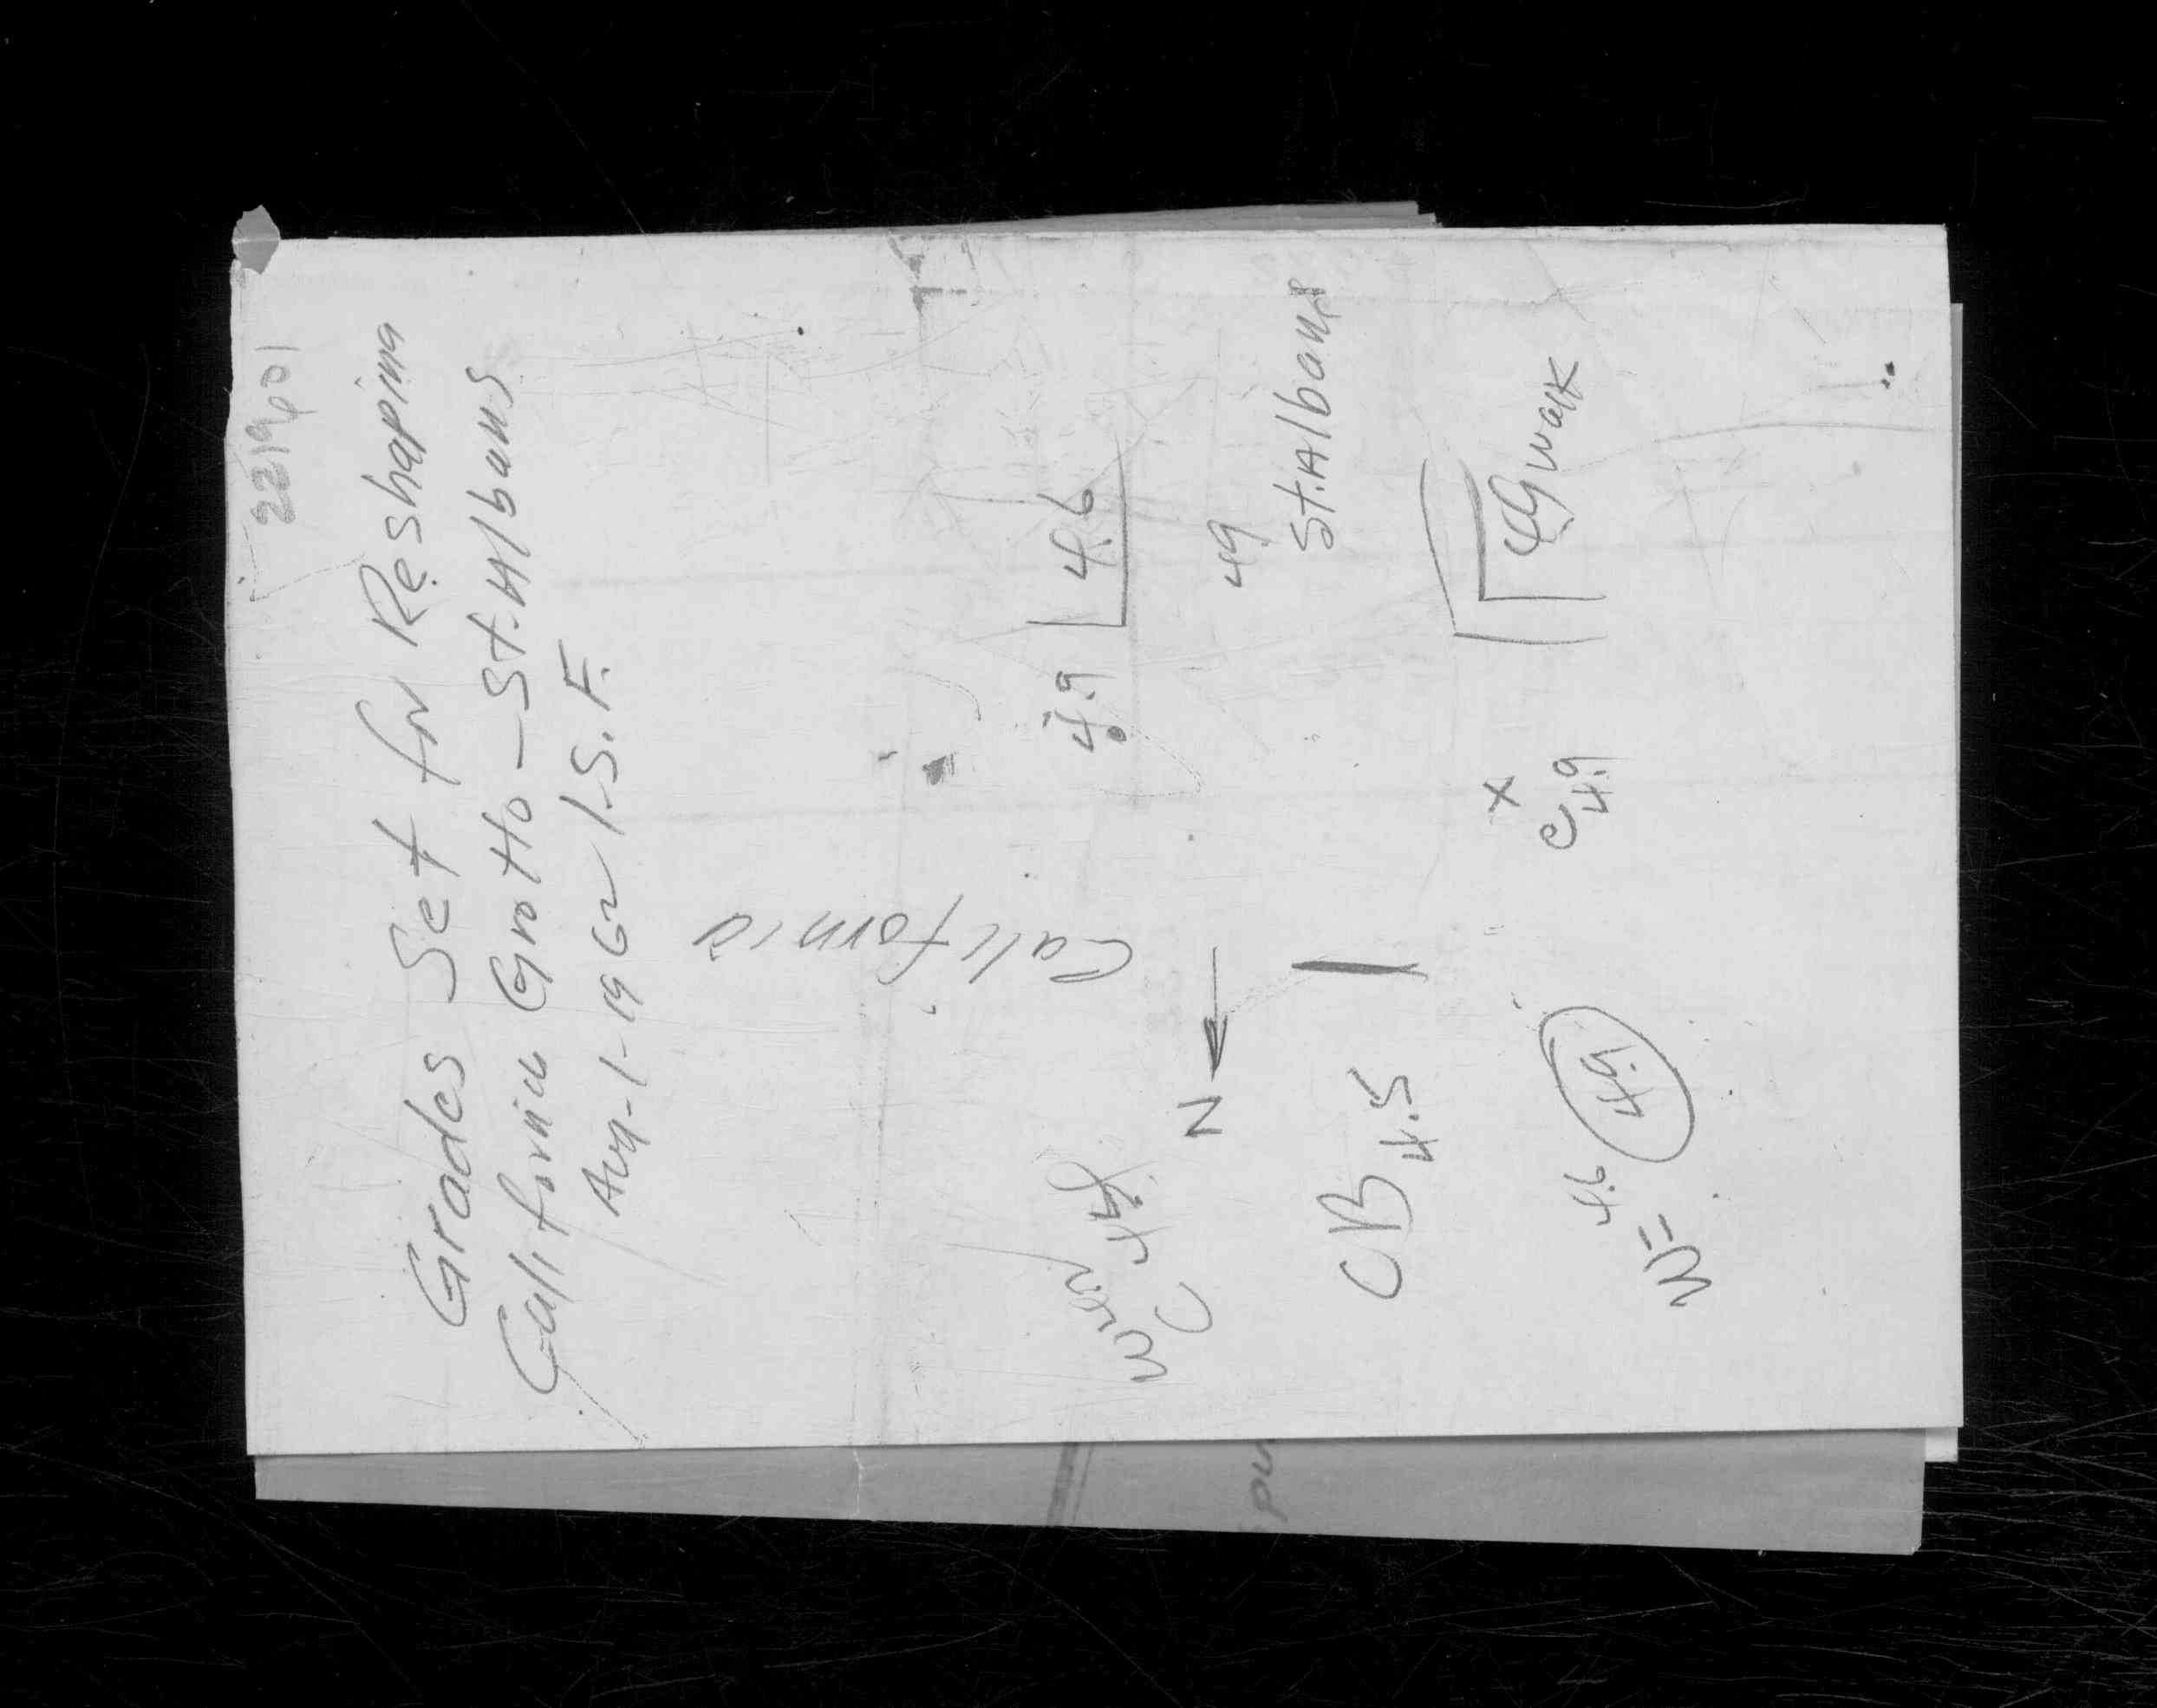 221901
Grades Set for Reshaping
California Grotto - St. Albans
Aug-1-1962 I.S.F.
California
4.9
4.6
49
St. Albans
N
C
CB 4.5
49 walk
X
C 4.9
4.9
W= 4.6